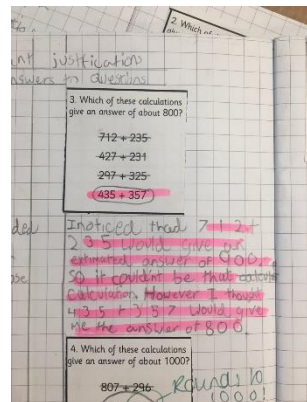 2. Which of
nt justification
nswers to questions
3. Which of these calculations
give an answer of about 800?
712 + 235
427 + 231
297 + 325
435 + 357
ded
I noticed that 712+
235 would give an
estimated answer of 900.
So it couldn't be that
Calculation. However I thought
435 + 357 would give
me the answer of 800.
4. Which of these calculations
give an answer of about 1000?
807 + 296
Rounds to
1000!